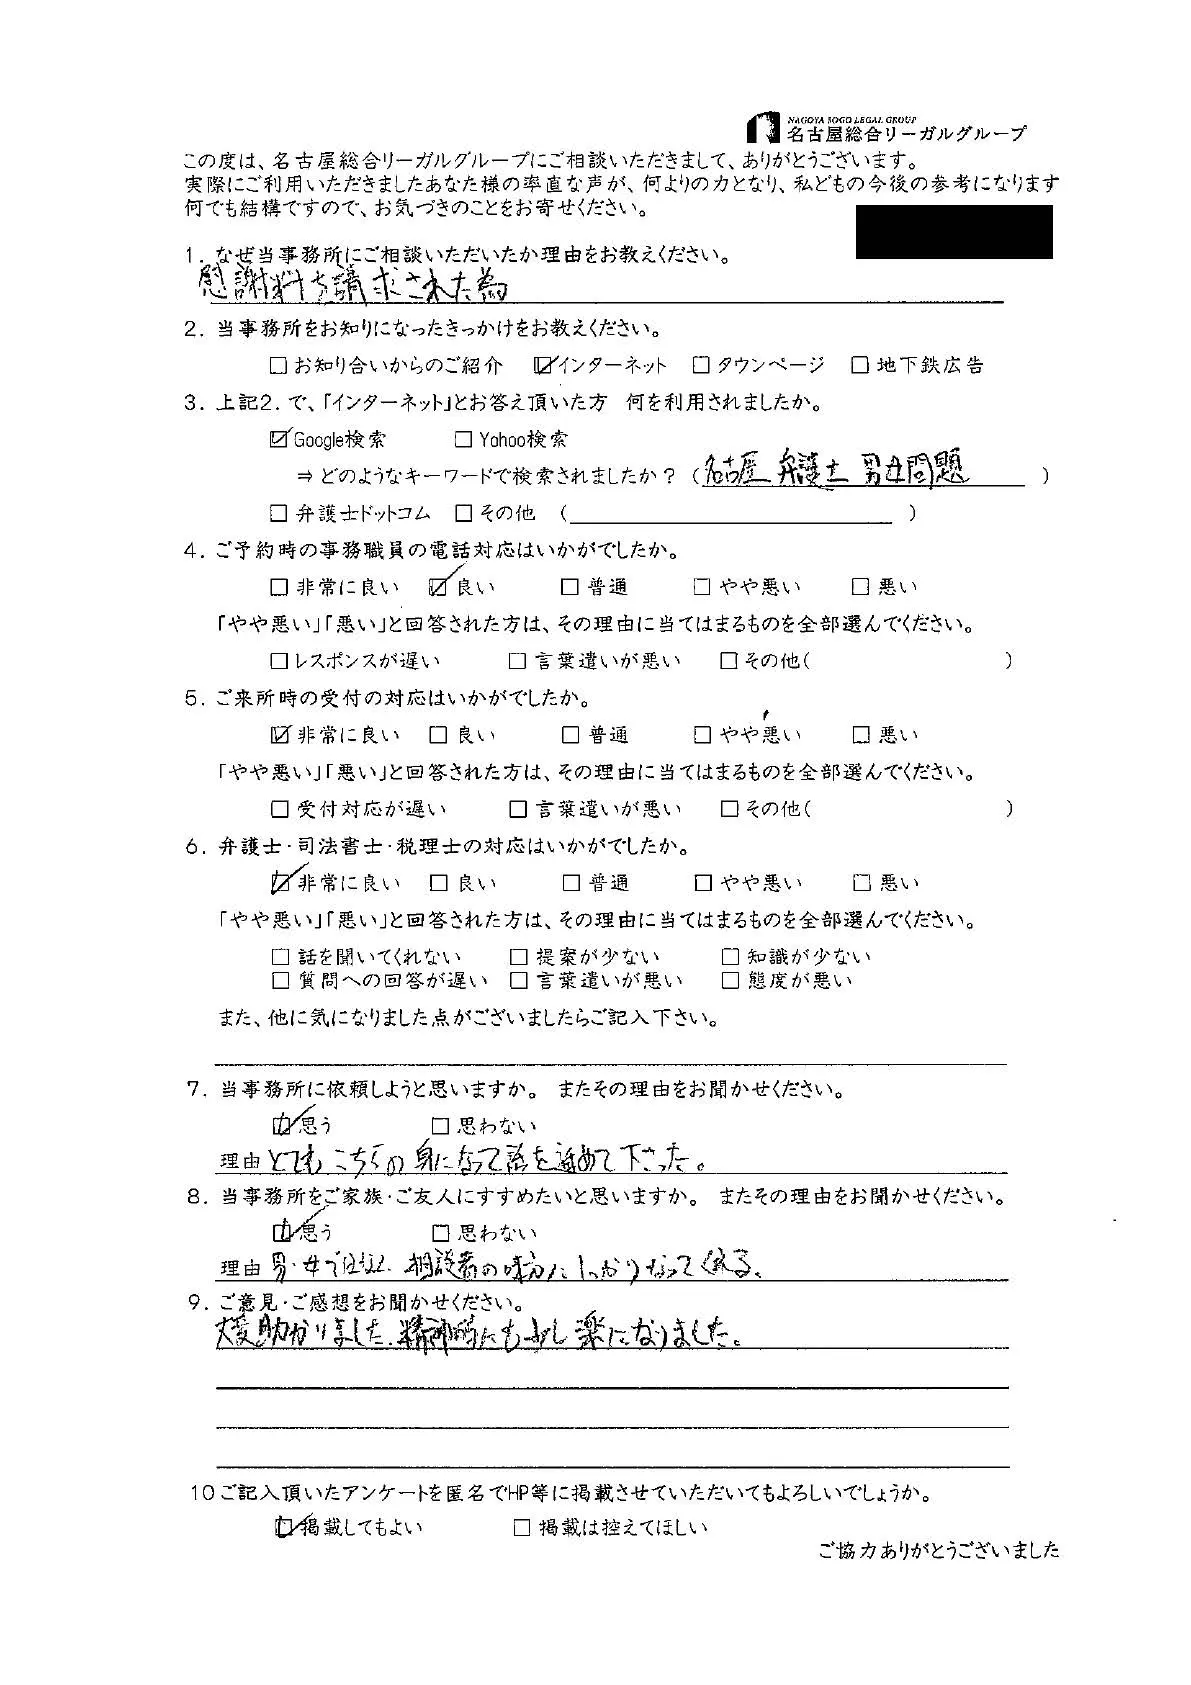 NAGOYA SOGO LEGAL GROUP
名古屋総合リーガルグループ
この度は、名古屋総合リーガルグループにご相談いただきまして、ありがとうございます。
実際にご利用いただきましたあなた様の率直な声が、何よりの力となり、私どもの今後の参考になります
何でも結構ですので、お気づきのことをお寄せください。
1. なぜ当事務所にご相談いただいたか理由をお教えください。
慰謝料を請求された為
2. 当事務所をお知りになったきっかけをお教えください。
□ お知り合いからのご紹介 ☑ インターネット □ タウンページ □ 地下鉄広告
3. 上記2. で、「インターネット」とお答え頂いた方 何を利用されましたか。
☑ Google検索 □ Yahoo検索
⇒ どのようなキーワードで検索されましたか？ (名古屋 弁護士 男女問題)
□ 弁護士ドットコム □ その他 ( )
4. ご予約時の事務職員の電話対応はいかがでしたか。
□ 非常に良い ☑ 良い □ 普通 □ やや悪い □ 悪い
「やや悪い」「悪い」と回答された方は、その理由に当てはまるものを全部選んでください。
□ レスポンスが遅い □ 言葉遣いが悪い □ その他( )
5. ご来所時の受付の対応はいかがでしたか。
☑ 非常に良い □ 良い □ 普通 □ やや悪い □ 悪い
「やや悪い」「悪い」と回答された方は、その理由に当てはまるものを全部選んでください。
□ 受付対応が遅い □ 言葉遣いが悪い □ その他( )
6. 弁護士・司法書士・税理士の対応はいかがでしたか。
☑ 非常に良い □ 良い □ 普通 □ やや悪い □ 悪い
「やや悪い」「悪い」と回答された方は、その理由に当てはまるものを全部選んでください。
□ 話を聞いてくれない □ 提案が少ない □ 知識が少ない
□ 質問への回答が遅い □ 言葉遣いが悪い □ 態度が悪い
また、他に気になりました点がございましたらご記入下さい。
7. 当事務所に依頼しようと思いますか。 またその理由をお聞かせください。
☑ 思う □ 思わない
理由 とてもこちらの身になって話を進めて下さった。
8. 当事務所をご家族・ご友人にすすめたいと思いますか。 またその理由をお聞かせください。
☑ 思う □ 思わない
理由 男・女ではなく、相談者の味方にしっかりなってくれる、
9. ご意見・ご感想をお聞かせください。
大変助かりました、精神的にも少し楽になりました。
10 ご記入頂いたアンケートを匿名でHP等に掲載させていただいてもよろしいでしょうか。
☑ 掲載してもよい □ 掲載は控えてほしい
ご協力ありがとうございました